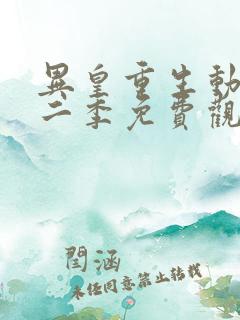 異皇重生動
二季免費觀
閆涵
未经同意禁止转载